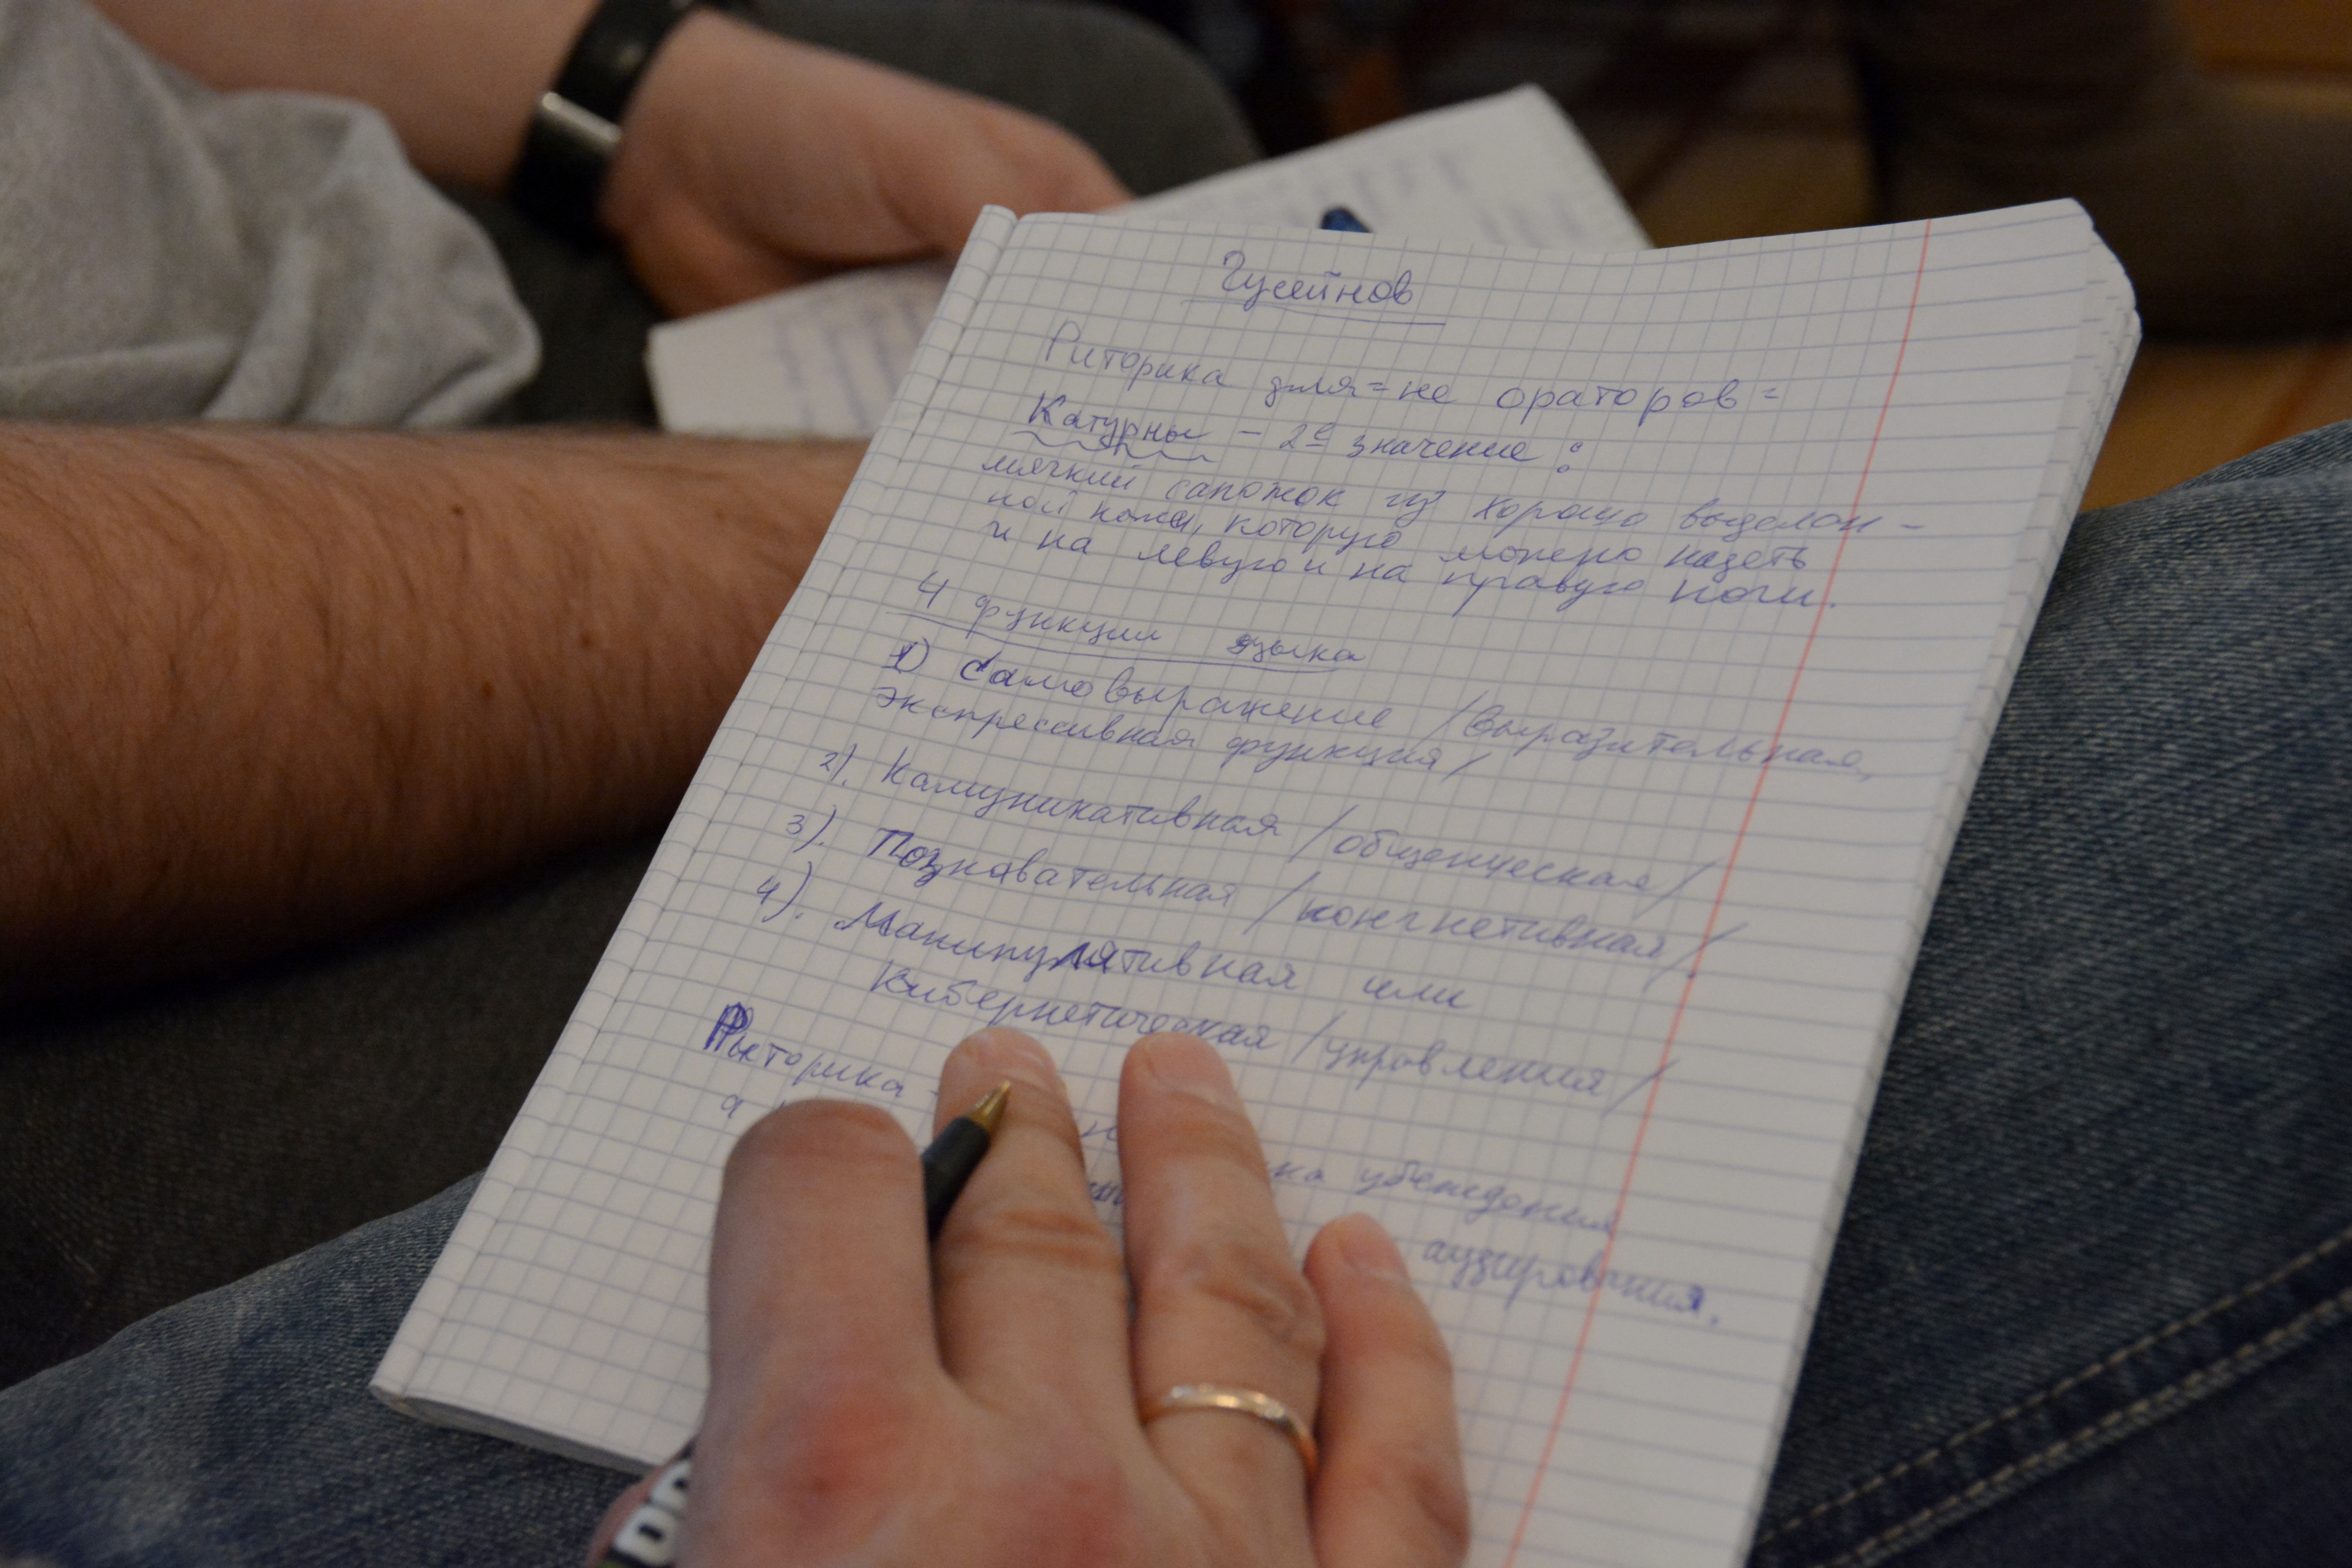 Гусейнов
Риторика для = не ораторов =
Катурны – 2е значение :
мягкий сапожок из хорошо выделан-
ной кожи, которую можно надеть
и на левую и на правую ноги.
4 функции языка
1) Самовыражение /выразительная,
экспрессивная функция/
2). Камуникативная /общенческая/
3). Познавательная /конгнетивная/
4). Манипулятивная или
Кибернетическая /упровления/
Риторика -
убеждения
аудирования.